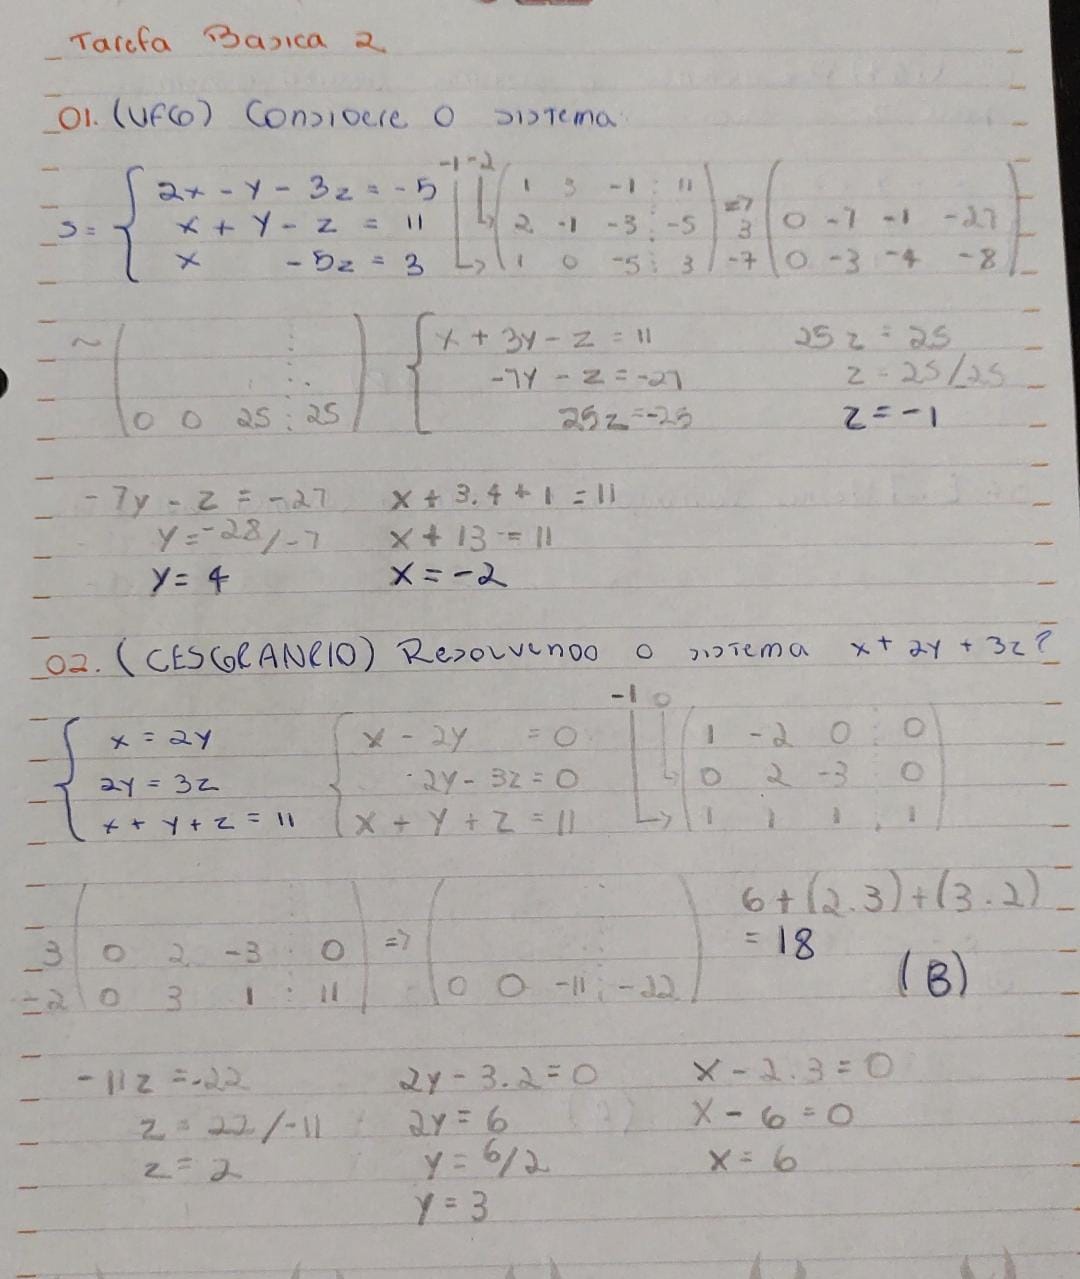 Tarefa Basica 2
01. (UFGO) Considere o sistema
S = { 2x - y - 3z = -5
x + y - z = 11
x - 5z = 3
-1 -2
1 3 -1 : 11
2 -1 -3 : -5
1 0 -5 : 3
=>
3 0 -7 -1 -27
-7 0 -3 -4 -8
~ 0 0 25 : 25
x + 3y - z = 11
-7y - z = -27
25z = -25
25z = 25
z = 25/25
z = -1
-7y - z = -27
y = -28/-7
y = 4
x + 3.4 + 1 = 11
x + 13 = 11
x = -2
02. (CESGRANRIO) Resolvendo o sistema x + 2y + 3z?
x = 2y
2y = 3z
x + y + z = 11
x - 2y = 0
2y - 3z = 0
x + y + z = 11
-1 0
1 -2 0 : 0
0 2 -3 : 0
1 1 1 : 1
3 0 2 -3 : 0
-2 0 3 1 : 11
=>
0 0 -11 : -22
6 + (2.3) + (3.2)
= 18
(B)
-11z = -22
z = 22/-11
z = 2
2y - 3.2 = 0
2y = 6
y = 6/2
y = 3
x - 2.3 = 0
x - 6 = 0
x = 6